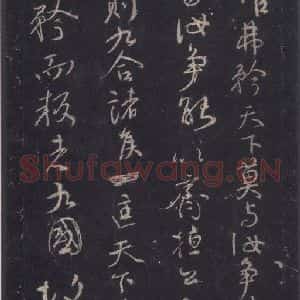 弗矜天下莫与汝争
汝争能以齊桓公
則九合諸侯一匡天下
矜而叛者九國故
Shufawang.CN